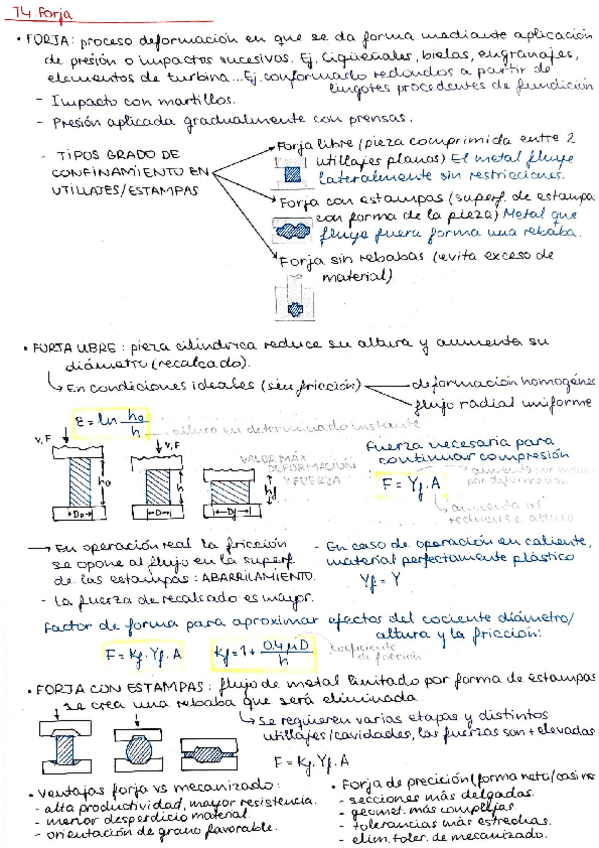 T4 Forja
• FORJA: proceso deformación en que se da forma mediante aplicación
de presión o impactos sucesivos. Ej. Cigüeñales, bielas, engranajes,
elementos de turbina... Ej. conformado redondos a partir de
lingotes procedentes de fundición
- Impacto con martillos.
- Presión aplicada gradualmente con prensas.
- TIPOS GRADO DE
CONFINAMIENTO EN
UTILLAJES/ESTAMPAS
Forja libre (pieza comprimida entre 2
utillajes planos) El metal fluye
lateralmente sin restricciones.
Forja con estampas (superf. de estampa
con forma de la pieza) Metal que
fluye fuera forma una rebaba.
Forja sin rebabas (evita exceso de
material)
• FORJA LIBRE: pieza cilíndrica reduce su altura y aumenta su
diámetro (recalcado).
En condiciones ideales (sin fricción)
deformación homogéne
flujo radial uniforme
ε = ln ho/h
altura en determinado instante
v, F
v, F
ho
h
hf
Do
D
Df
VALOR MÁX
DEFORMACIÓN
Y FUERZA
Fuerza necesaria para
continuar compresión
F = Yf . A
aumenta por
por deformación
aumenta al
reducirse altura
→ En operación real la fricción
se opone al flujo en la superf.
de las estampas: ABARRILAMIENTO.
- La fuerza de recalcado es mayor.
- En caso de operación en caliente,
material perfectamente plástico
Yf = Y
Factor de forma para aproximar efectos del cociente diámetro/
altura y la fricción:
F = Kf . Yf . A
Kf = 1 + 0.4 μD/h
coeficiente
de fricción
• FORJA CON ESTAMPAS: flujo de metal limitado por forma de estampas
se crea una rebaba que será eliminada.
Se requieren varias etapas y distintos
utillajes/cavidades, las fuerzas son + elevadas
F = Kf . Yf . A
• Ventajas forja vs mecanizado:
- alta productividad, mayor resistencia.
- menor desperdicio material.
- orientación de grano favorable.
• Forja de precición (forma neta/casi ne
- secciones más delgadas.
- geomet. más complejas.
- tolerancias más estrechas.
- elim. toler. de mecanizado.